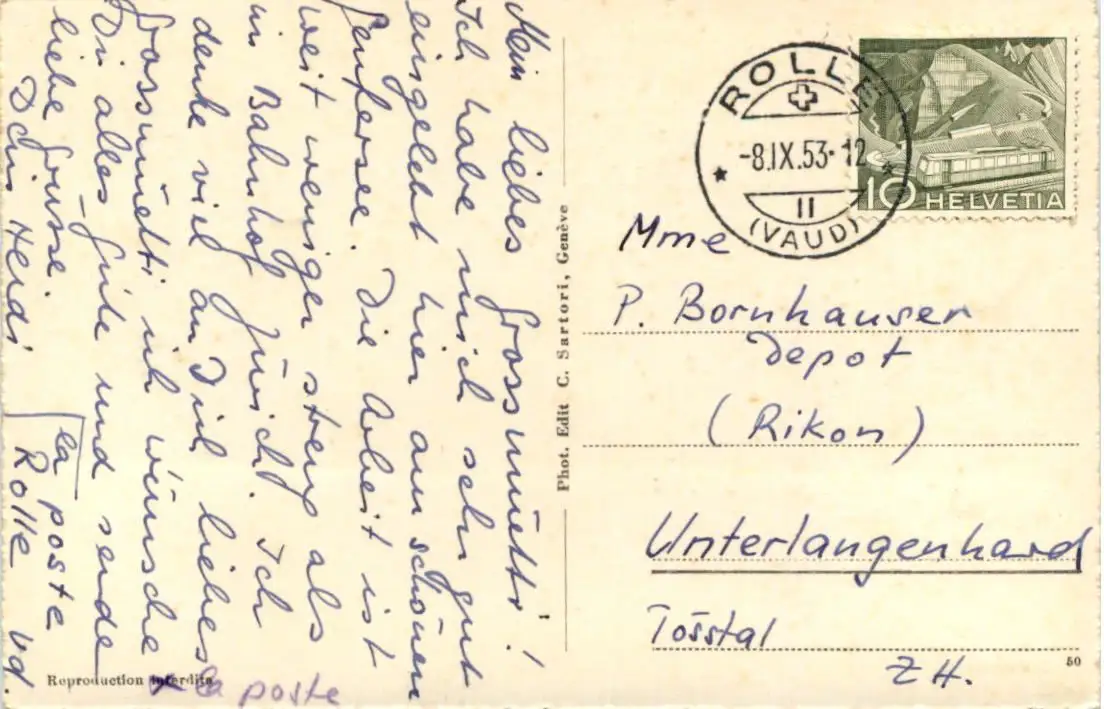 Mein liebes Grossmuetti!
Ich habe mich sehr gut
eingelebt hier am schönen
Genfersee. Die Arbeit ist
weit weniger streng als
im Bahnhof Zürich. Ich
denke viel an Dich liebes
Grossmuetti ich wünsche
Dir alles Gute und sende
liebe Grüsse.
Dein Heidi
la poste
Rolle Vd.
la poste
Reproduction interdite
Phot. Edit C. Sartori, Genève
1
ROLLE
-8.IX.53-12
II
(VAUD)
10 HELVETIA
Mme
P. Bornhauser
Depot
(Rikon)
Unterlangenhard
Tösstal
ZH.
50